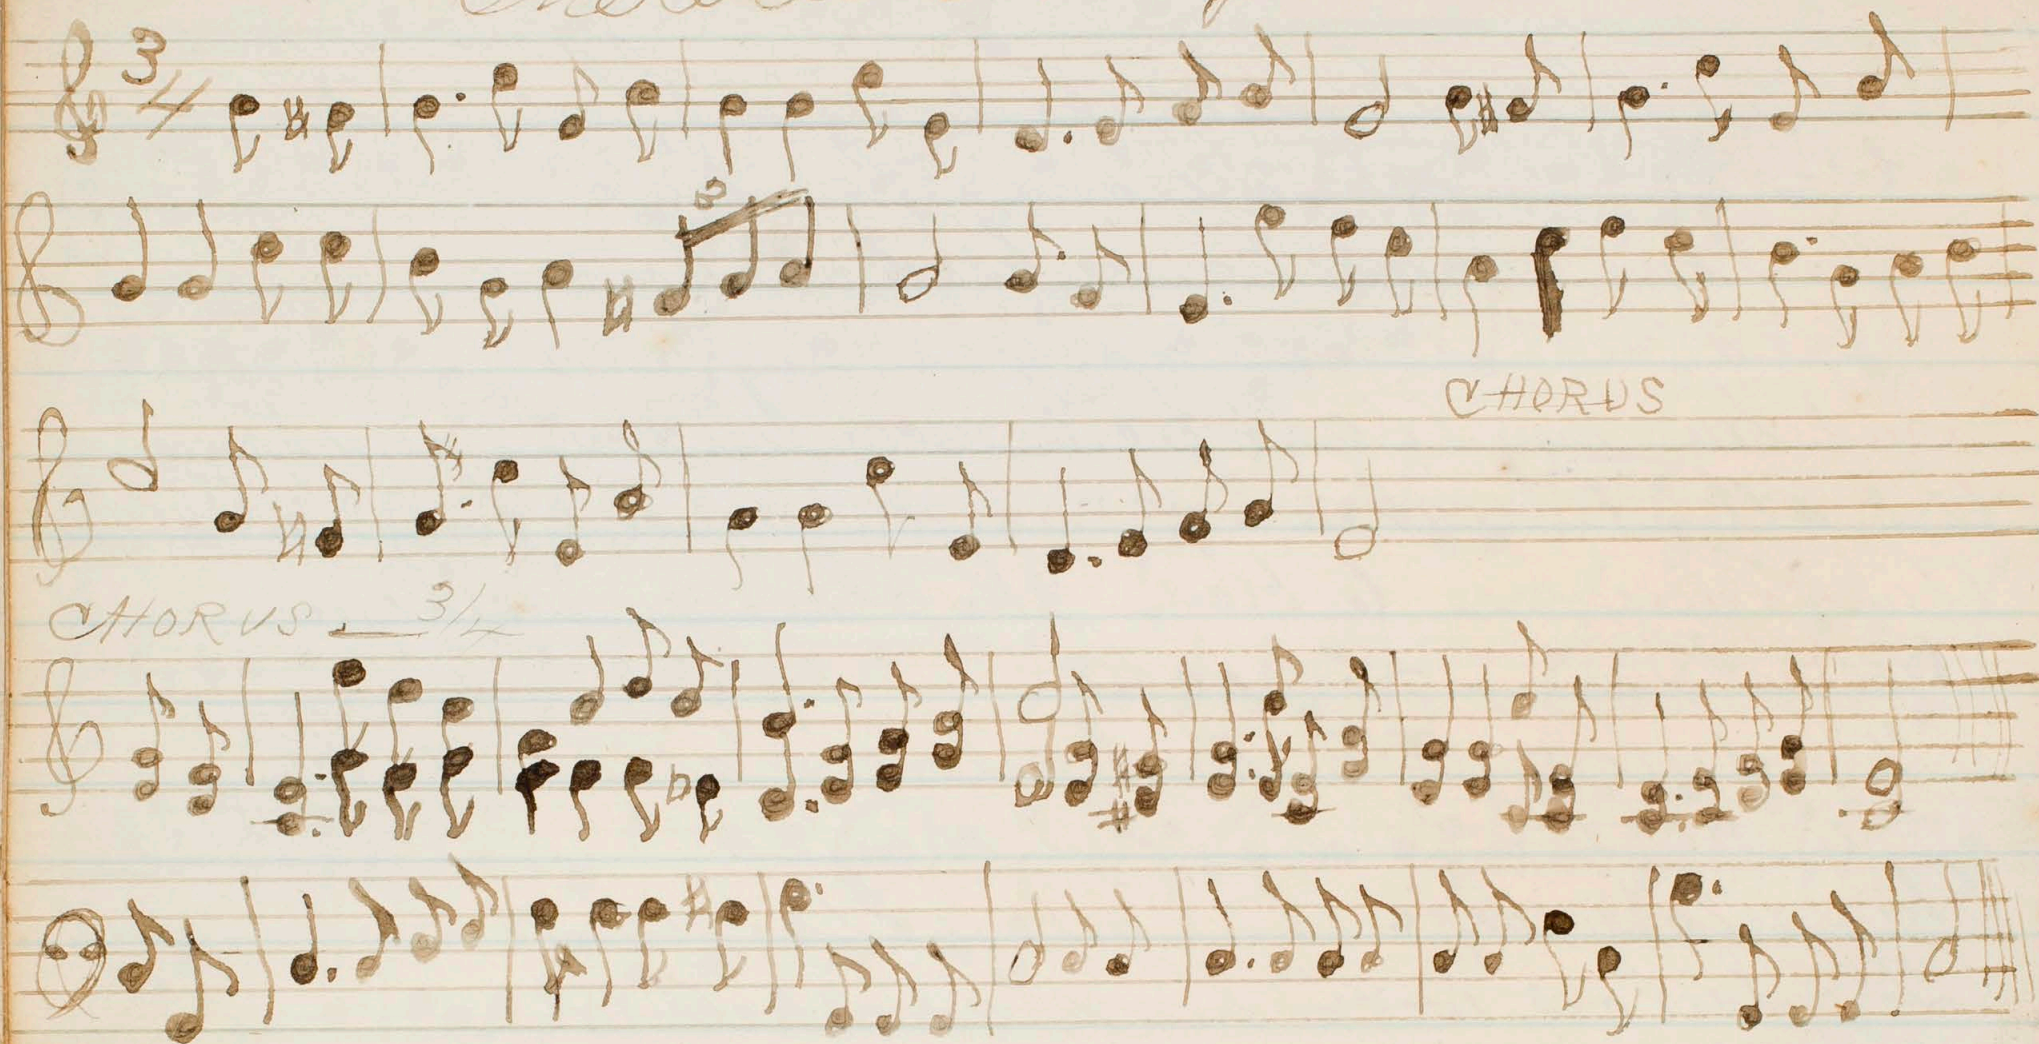 3/4
3
CHORUS
CHORUS — 3/4